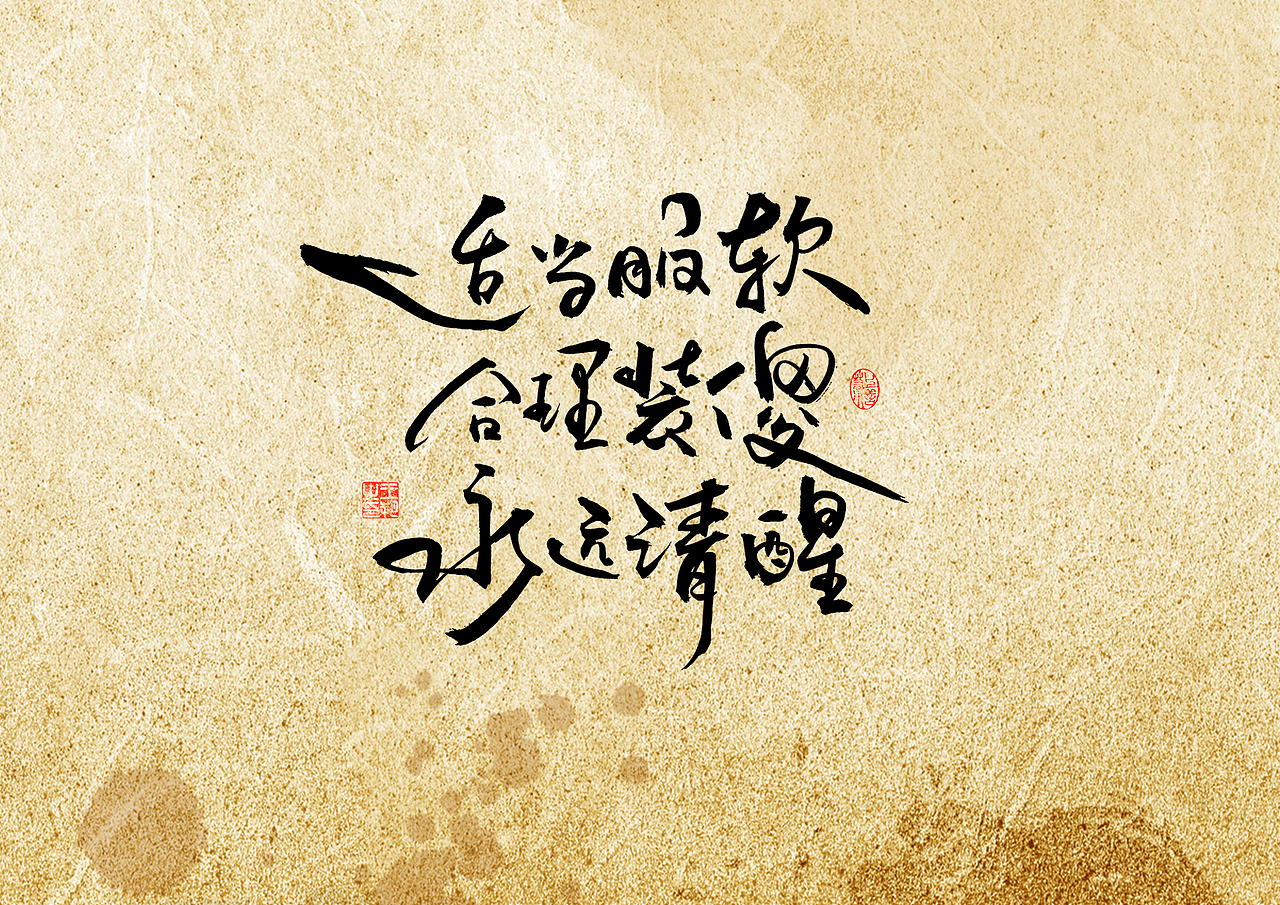 适当服软
合理装傻
永远清醒